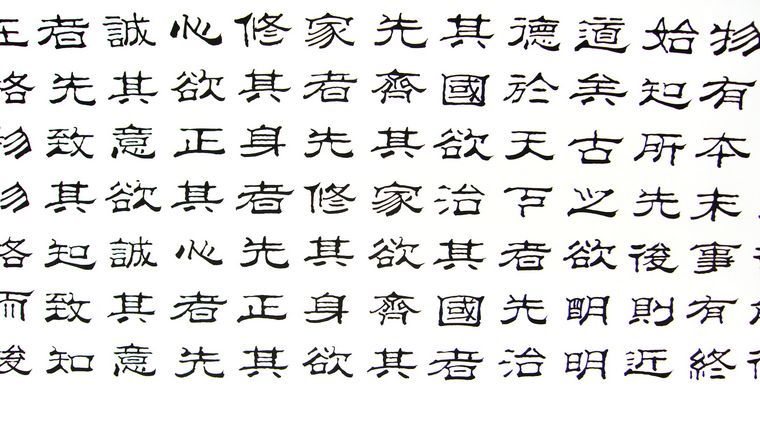 物有本末事有終
始知所先後則近
道矣古之欲明明
德於天下者先治
其國欲治其國者
先齊其家欲齊其
家者先修其身欲
修其身者先正其
心欲正其心者先
誠其意欲誠其意
者先致其知致知
在格物物格而後